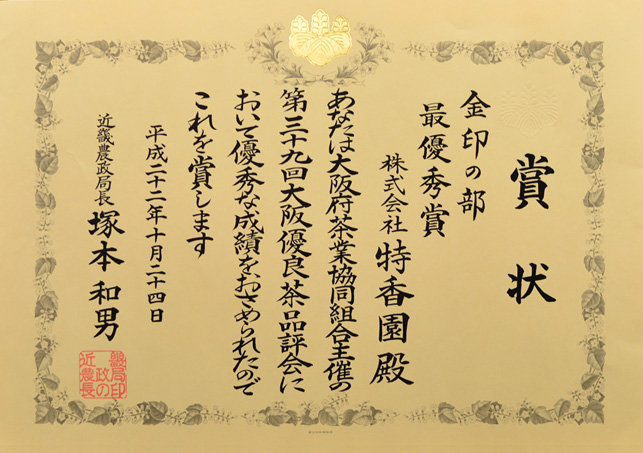 賞状
金印の部
最優秀賞
株式会社 特香園殿
あなたは大阪府茶業協同組合主催の
第三十九回大阪優良茶品評会に
おいて優秀な成績をおさめられたので
これを賞します
平成二十二年十月二十四日
近畿農政局長 塚本和男
畿局印
政の
近農長